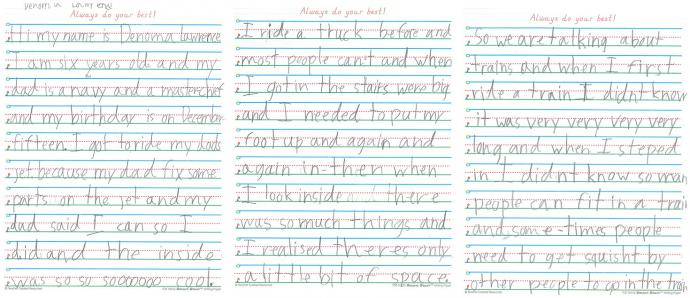 Denoma Lawrence
Always do your best!
Hi my name is Denoma Lawrence
I am six years old and my
dad is a navy and a masterchef
and my birthday is on December
fifteen. I got to ride my dads
jet because my dad fix some
parts on the jet and my
dad said I can so I
did and the inside
was so so soooooo cool.
Always do your best!
I ride a thuck before and
most people can't and when
I got in the stairs were big
and I needed to put my
foot up and again and
again in-then when
I look inside there
was so much things and
I realised theres only
a little bit of space.
Always do your best!
So we are talking about
trains and when I first
ride a train I didnt know
it was very very very very
long and when I steped
in I didnt know so man
people can fit in a train
and some-times people
need to get squisht by
other people to go in the train